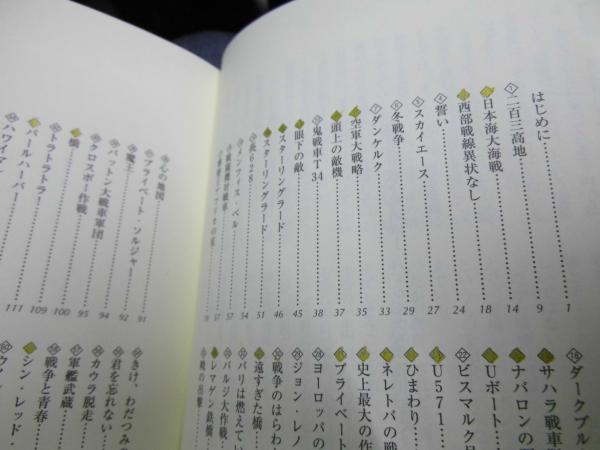 はじめに 1
① 二百三高地 9
日本海大海戦 14
西部戦線異状なし 18
④ 誓い 24
⑤ スカイエース 27
⑥ 冬戦争 29
⑦ ダンケルク 33
空軍大戦略 35
頭上の敵機 37
⑩ 鬼戦車T34 38
眼下の敵 45
スターリングラード 46
スターリングラード 51
炎628 54
メンフィス・ベル 57
57
59
⑱ ダークブル
サハラ戦車
ナバロンの
Uボート
㉒ ビスマルク号
U571
ひまわり
ネレトバの戦
史上最大の作
プライベート
㉘ ヨーロッパの
ジョン・レノ
㉚ 戦争のはらわた
遠すぎた橋
パリは燃えてい
バルジ大作戦
レマゲン鉄橋
暁の出撃
心の地図 91
プライベート・ソルジャー 92
魔王 94
パットン大戦車軍団 95
クロスボー作戦 100
橋 109
トラトラトラ! 111
パールハーバー
ハワイ・マ
きけ、わだつみの
君を忘れない
カウラ脱走
軍艦武蔵
戦争と青春
シン・レッド・